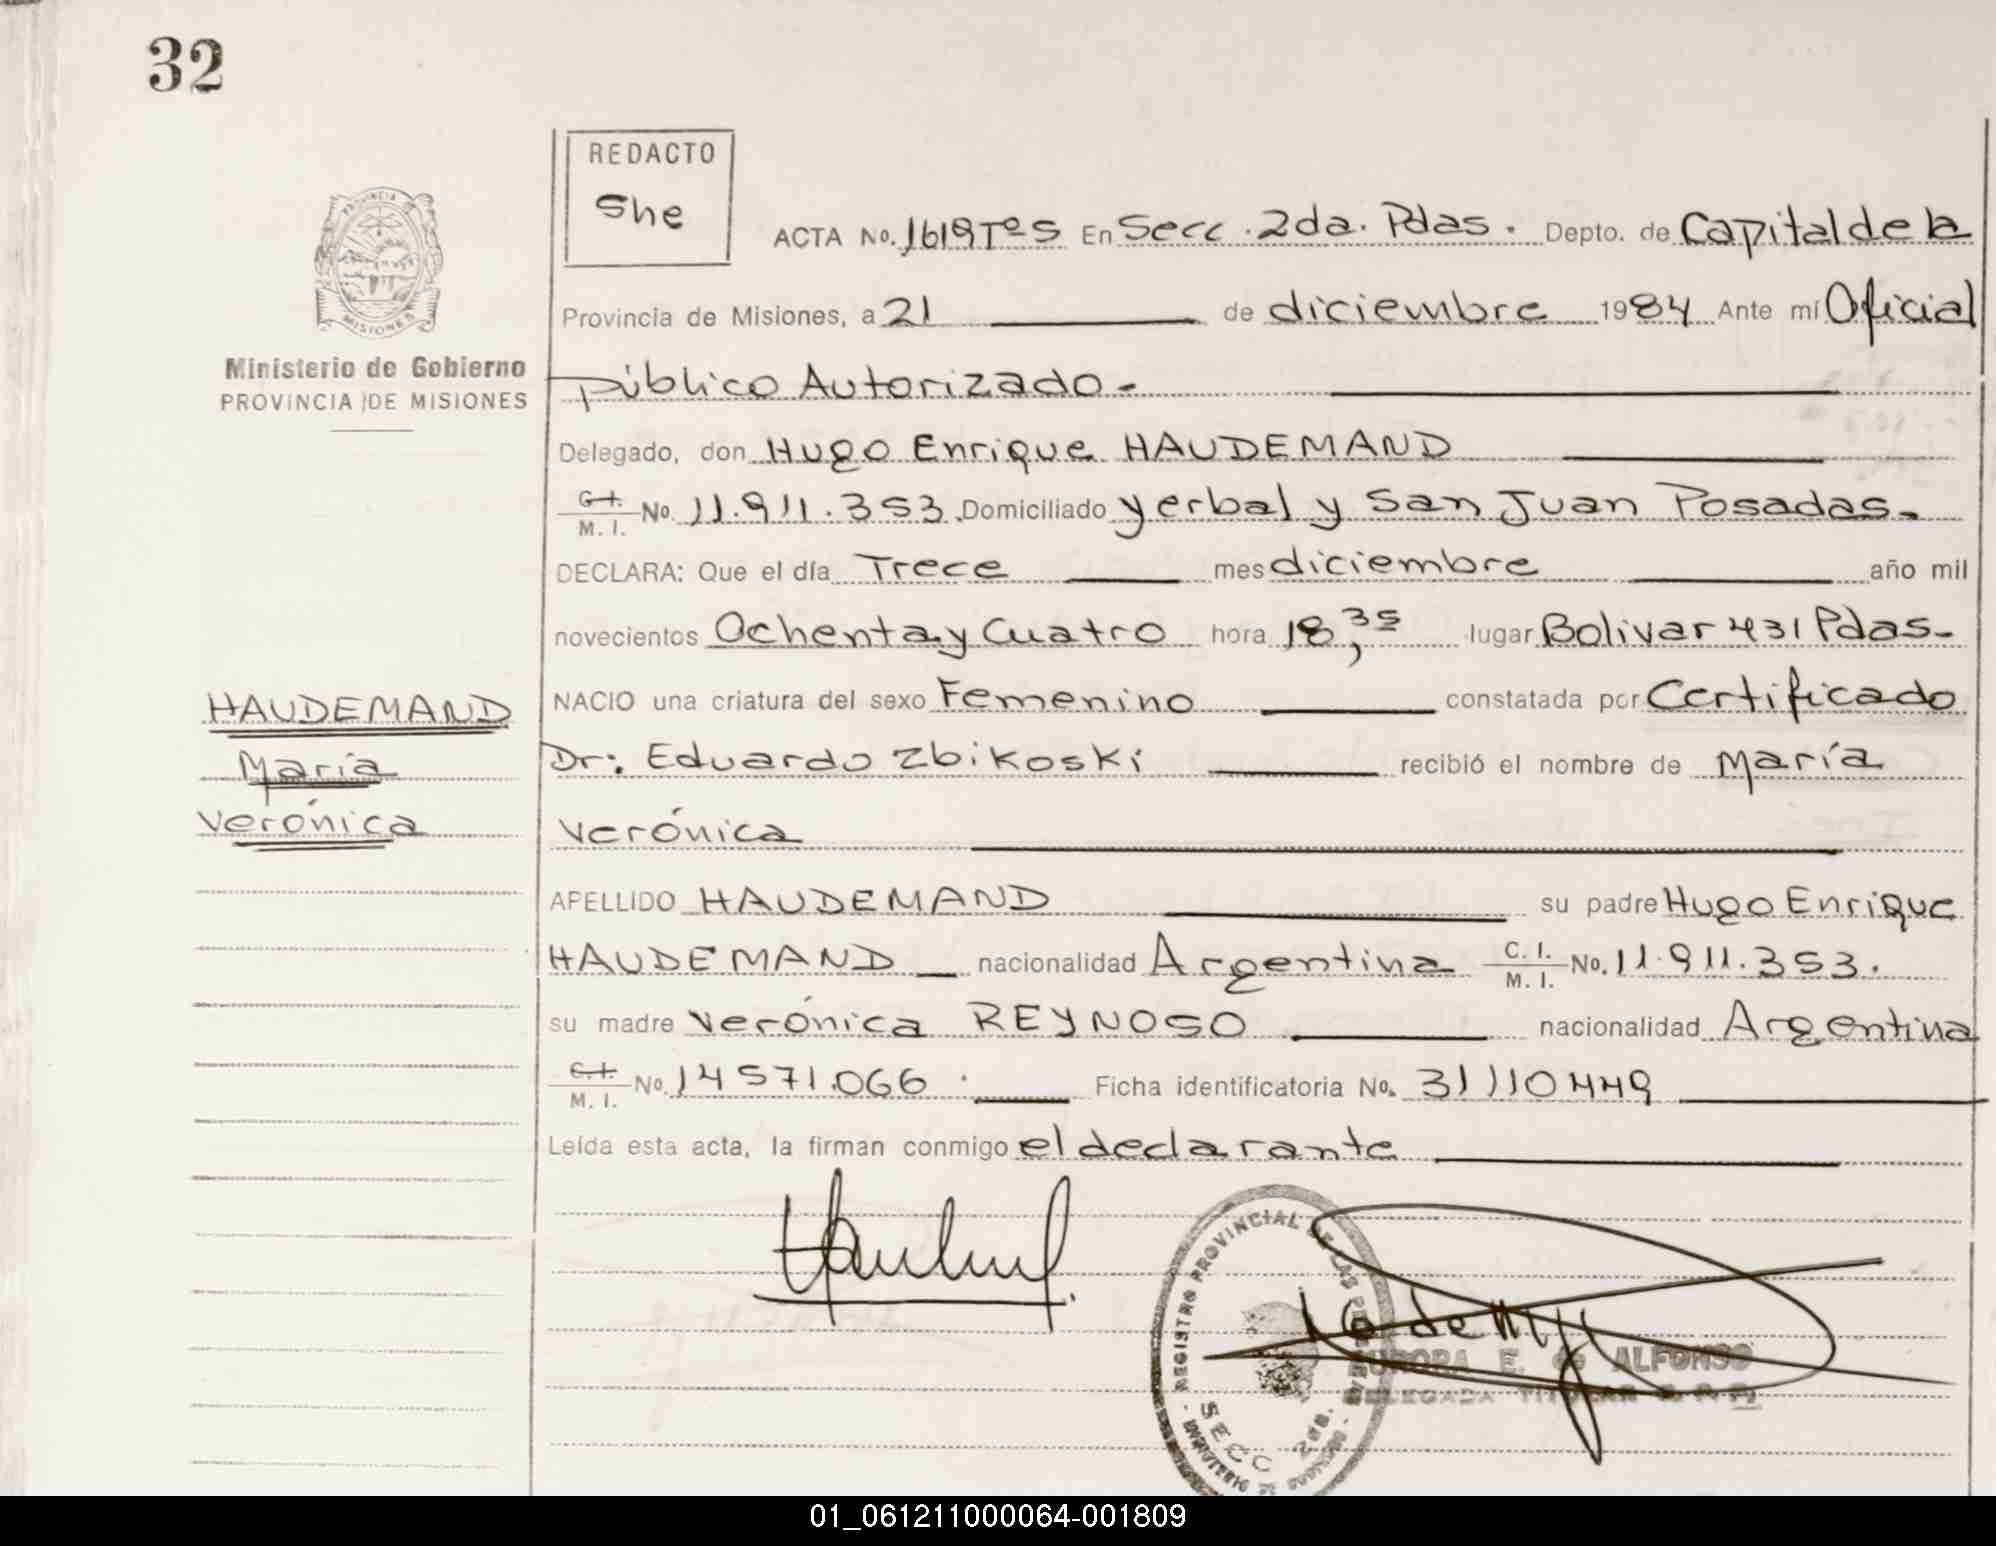 32
REDACTO
She
PROVINCIA DE
MISIONES
Ministerio de Gobierno
PROVINCIA DE MISIONES
ACTA No. 1619Tºs En Secc. 2da. Pdas. Depto. de Capital de la
Provincia de Misiones, a 21 de diciembre 1984 Ante mí Oficial
Público Autorizado-
Delegado, don Hugo Enrique HAUDEMAND
C. I. / M. I. No. 11.911.353. Domiciliado Yerbal y San Juan Posadas.
DECLARA: Que el día Trece mes diciembre año mil
novecientos Ochenta y Cuatro hora 18,35 lugar Bolivar 431 Pdas-
NACIO una criatura del sexo Femenino constatada por Certificado
Dr: Eduardo Zbikoski recibió el nombre de María
Verónica
APELLIDO HAUDEMAND su padre Hugo Enrique
HAUDEMAND nacionalidad Argentina C. I. / M. I. No. 11.911.353.
su madre Verónica REYNOSO nacionalidad Argentina
C. I. / M. I. No. 14571.066. Ficha identificatoria No. 31110449
Leída esta acta, la firman conmigo el declarante
HAUDEMAND
María
Verónica
REGISTRO PROVINCIAL DE LAS PERSONAS
SECC 2da.
E. de ALFONSO
DELEGADA TITULAR
01_061211000064-001809